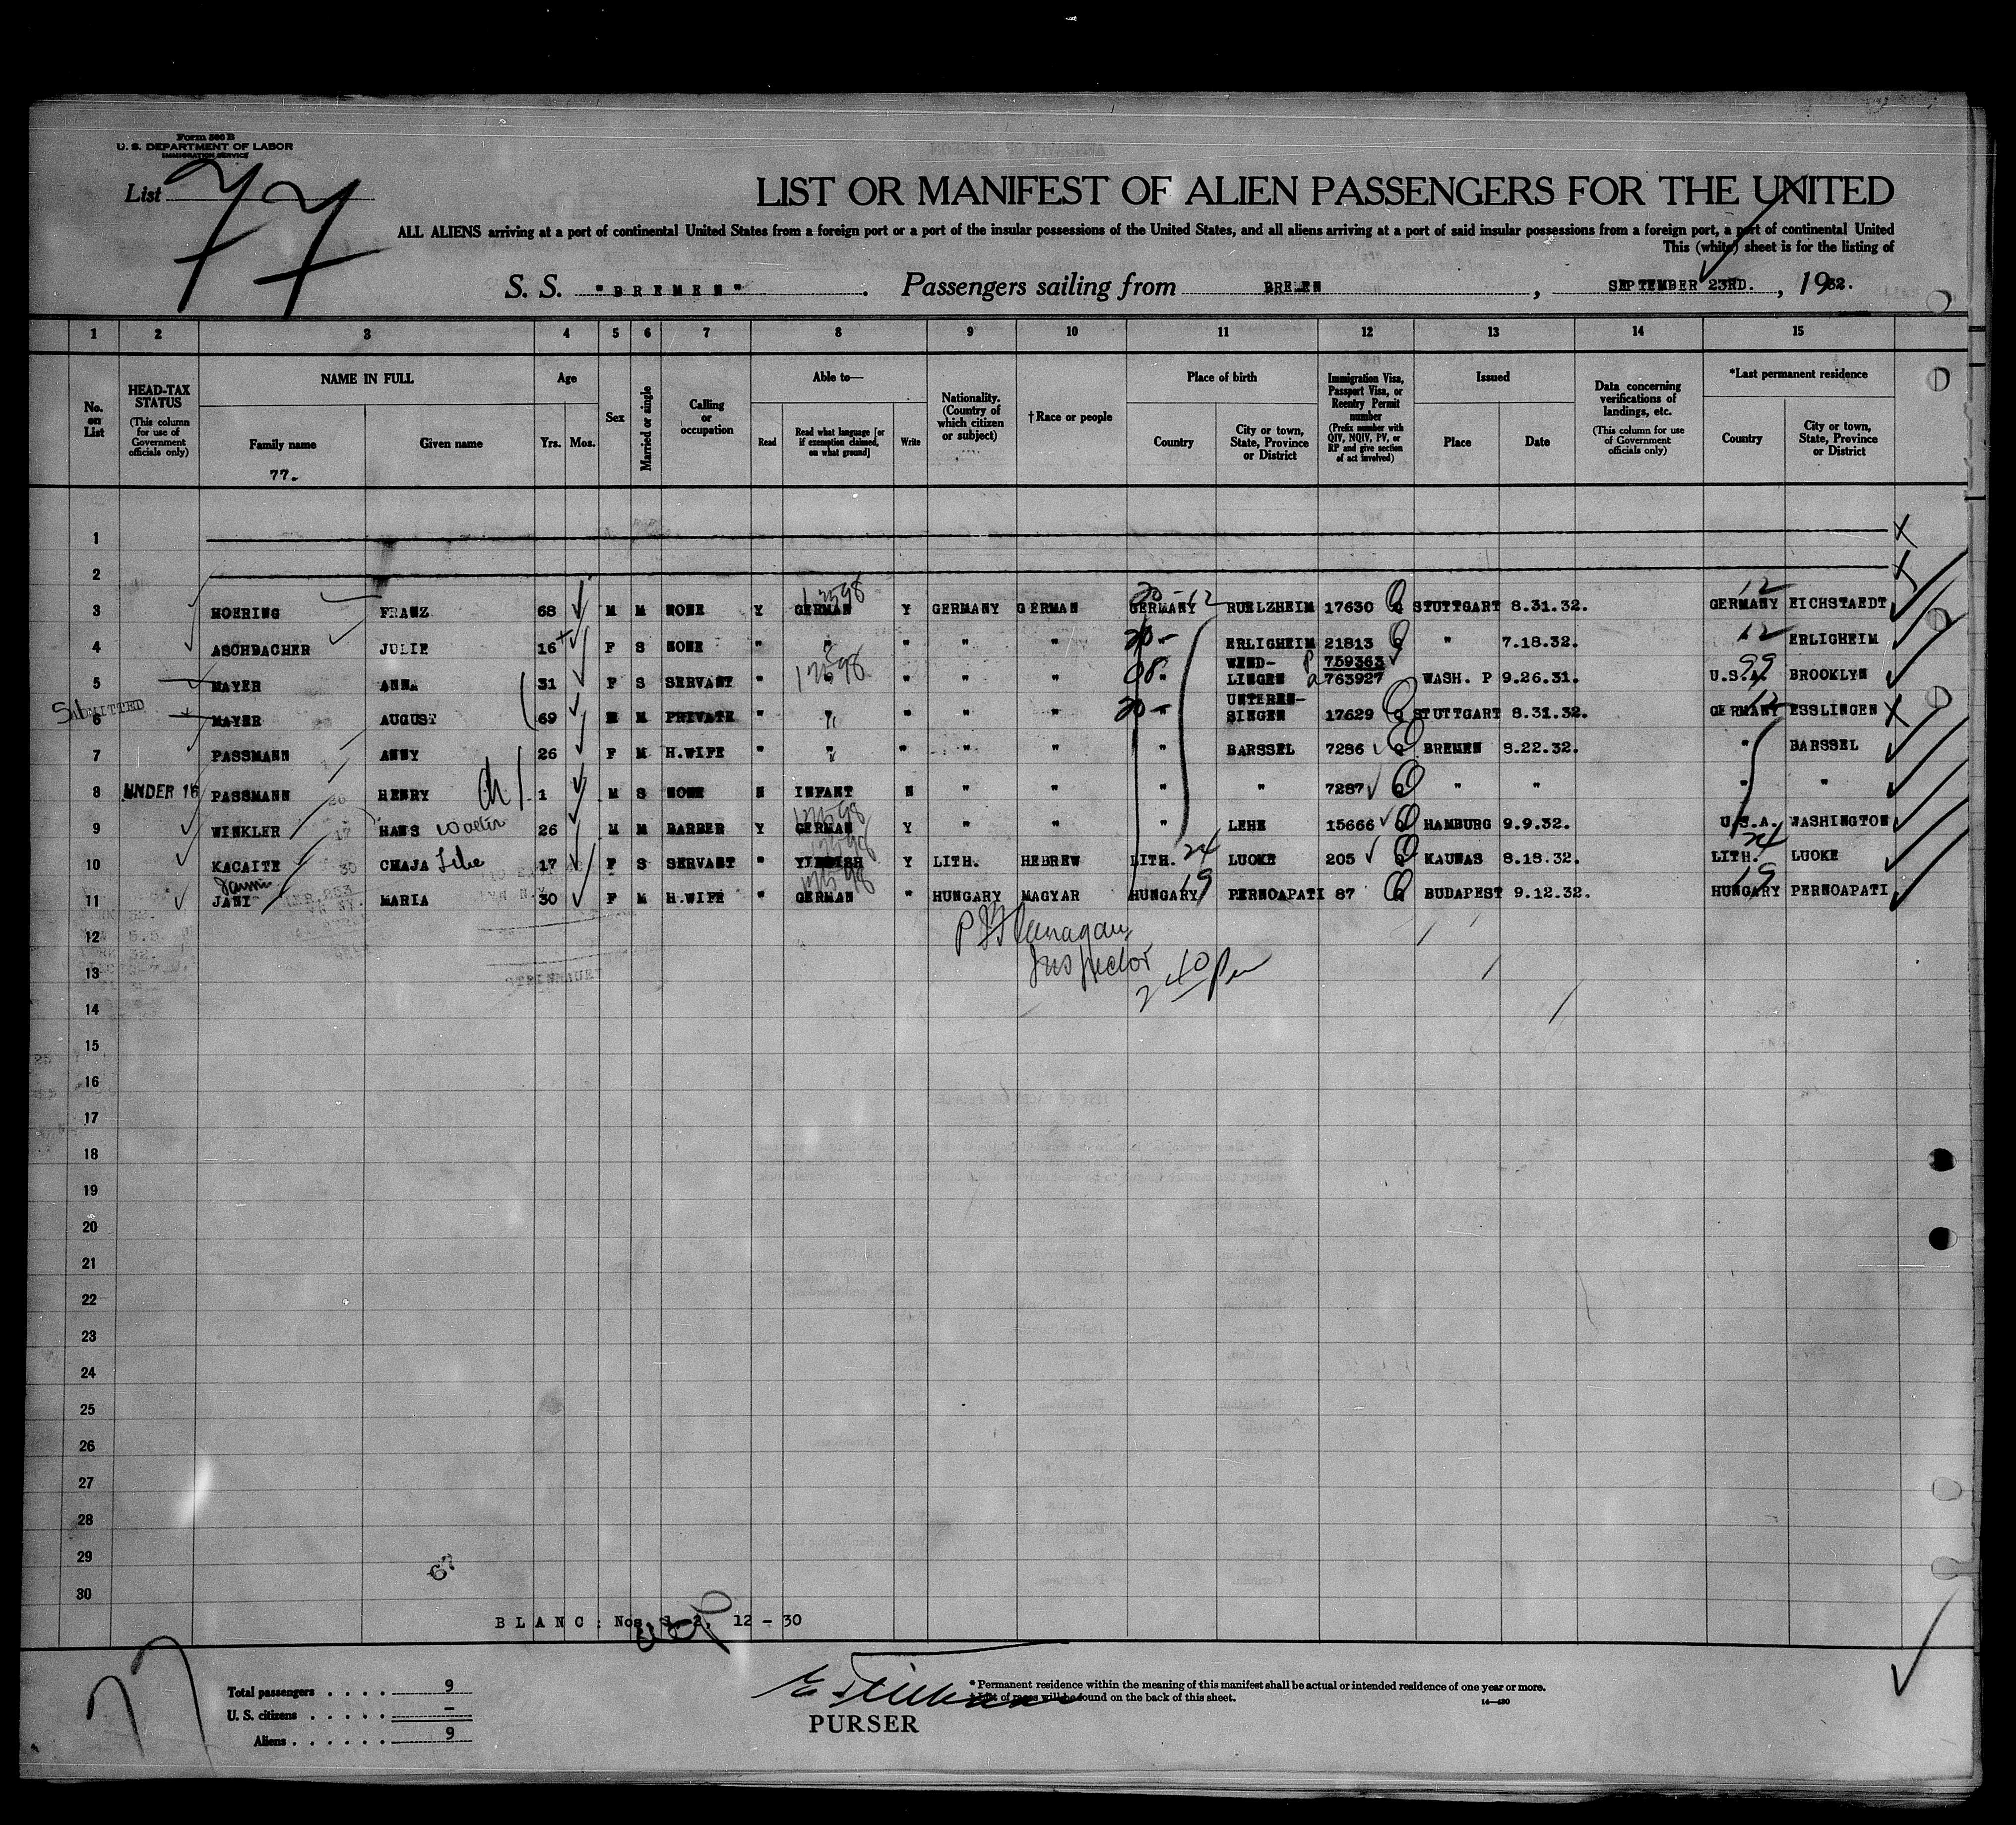 Form 500 B
U. S. DEPARTMENT OF LABOR
IMMIGRATION SERVICE
List 77
LIST OR MANIFEST OF ALIEN PASSENGERS FOR THE UNITED
ALL ALIENS arriving at a port of continental United States from a foreign port or a port of the insular possessions of the United States, and all aliens arriving at a port of said insular possessions from a foreign port, a port of continental United
This (white) sheet is for the listing of
S. S. "BREMEN". Passengers sailing from BREMEN, SEPTEMBER 23RD., 1932.
1 2 3 4 5 6 7 8 9 10 11 12 13 14 15
No. on List
HEAD-TAX STATUS (This column for use of Government officials only)
NAME IN FULL
Family name
Given name
77.
Age
Yrs. Mos.
Sex
Married or single
Calling or occupation
Able to—
Read
Read what language [or if exemption claimed, on what ground]
Write
Nationality. (Country of which citizen or subject)
†Race or people
Place of birth
Country
City or town, State, Province or District
Immigration Visa, Passport Visa, or Reentry Permit number (Prefix number with QIV, NQIV, PV, or RP and give section of act involved)
Issued
Place
Date
Data concerning verifications of landings, etc. (This column for use of Government officials only)
*Last permanent residence
Country
City or town, State, Province or District
1
2
3 HOERING FRANZ 68 M M NONE Y GERMAN Y GERMANY GERMAN GERMANY RUELZHEIM 17630 STUTTGART 8.31.32. GERMANY EICHSTAEDT
4 ASCHBACHER JULIE 16 F S NONE " " " " " ERLIGHEIM 21813 " 7.18.32. ERLIGHEIM
5 MAYER ANNA 31 F S SERVANT " " " " " " WEND-LINGEN 759363 763927 WASH. P 9.26.31. U.S.A. BROOKLYN
6 MAYER AUGUST 69 M M PRIVATE " " " " " " UNTEREN-SINGEN 17629 STUTTGART 8.31.32. GERMANY ESSLINGEN
7 PASSMANN ANNY 26 F M H.WIFE " " " " " " BARSSEL 7286 BREMEN 8.22.32. " BARSSEL
8 UNDER 16 PASSMANN HENRY 1 M S NONE N INFANT N " " " " 7287 " " " "
9 WINKLER HANS Walter 26 M M BARBER Y GERMAN Y " " " LEHE 15666 HAMBURG 9.9.32. U.S.A. WASHINGTON
10 KACAITE CHAJA 17 F S SERVANT " YIDDISH Y LITH. HEBREW LITH. LUOKE 205 KAUNAS 8.18.32. LITH. LUOKE
11 JANY MARIA 30 F M H.WIFE " GERMAN " HUNGARY MAGYAR HUNGARY PERNOAPATI 87 BUDAPEST 9.12.32. HUNGARY PERNOAPATI
12
Inspector
13
2 40 Pm
14
15
16
17
18
19
20
21
22
23
24
25
26
27
28
29
30
67
BLANC: Nos. 1-2, 12 - 30
77
Total passengers . . . . 9
U. S. citizens . . . . . –
Aliens . . . . . . 9
PURSER
* Permanent residence within the meaning of this manifest shall be actual or intended residence of one year or more.
† List of races will be found on the back of this sheet.
14—430